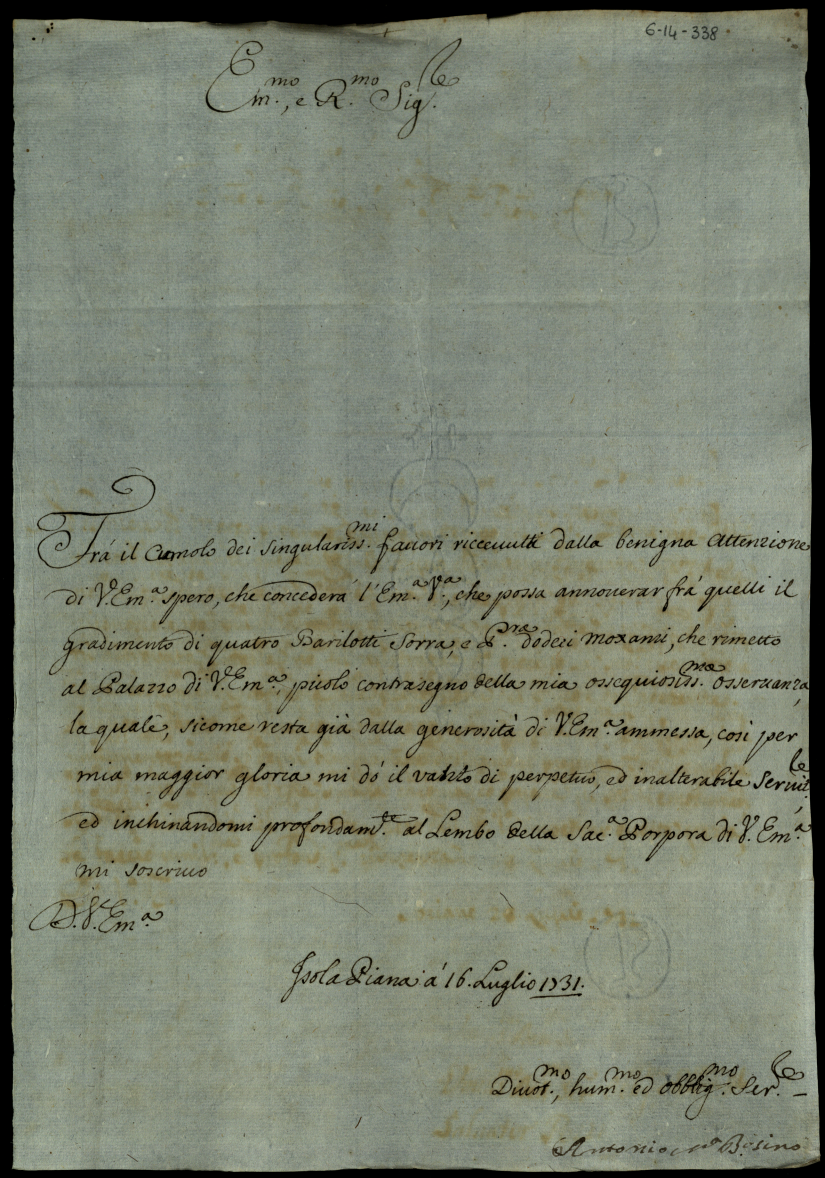 6-14-338
Em.mo, e R.mo Sig.re
Frá il Cumolo dei singulariss.mi fauori riceuuti dalla benigna attenzione
di V.Em.a spero, che concederá l'Em.a V.a, che possa annouerar frá quelli il
gradimento di quatro Barilotti Sorra, e P.ra dodeci moxami, che rimetto
al Palazzo di V.Em.a, picolo contrasegno della mia ossequiosiss.ma osseruanza,
la quale, sicome resta giá dalla generositá di V.Em.a ammessa, così per
mia maggior gloria mi dó il vanto di perpetuo, ed inalterabile Seruit.le,
ed inchinandomi profondam.te al Lembo della Sac.a Porpora di V. Em.a
mi soscriuo
D.V.Em.a
Isola Piana á 16. Luglio 1731.
Diuot.mo, hum.mo ed obblig.mo Ser.re
Antonio